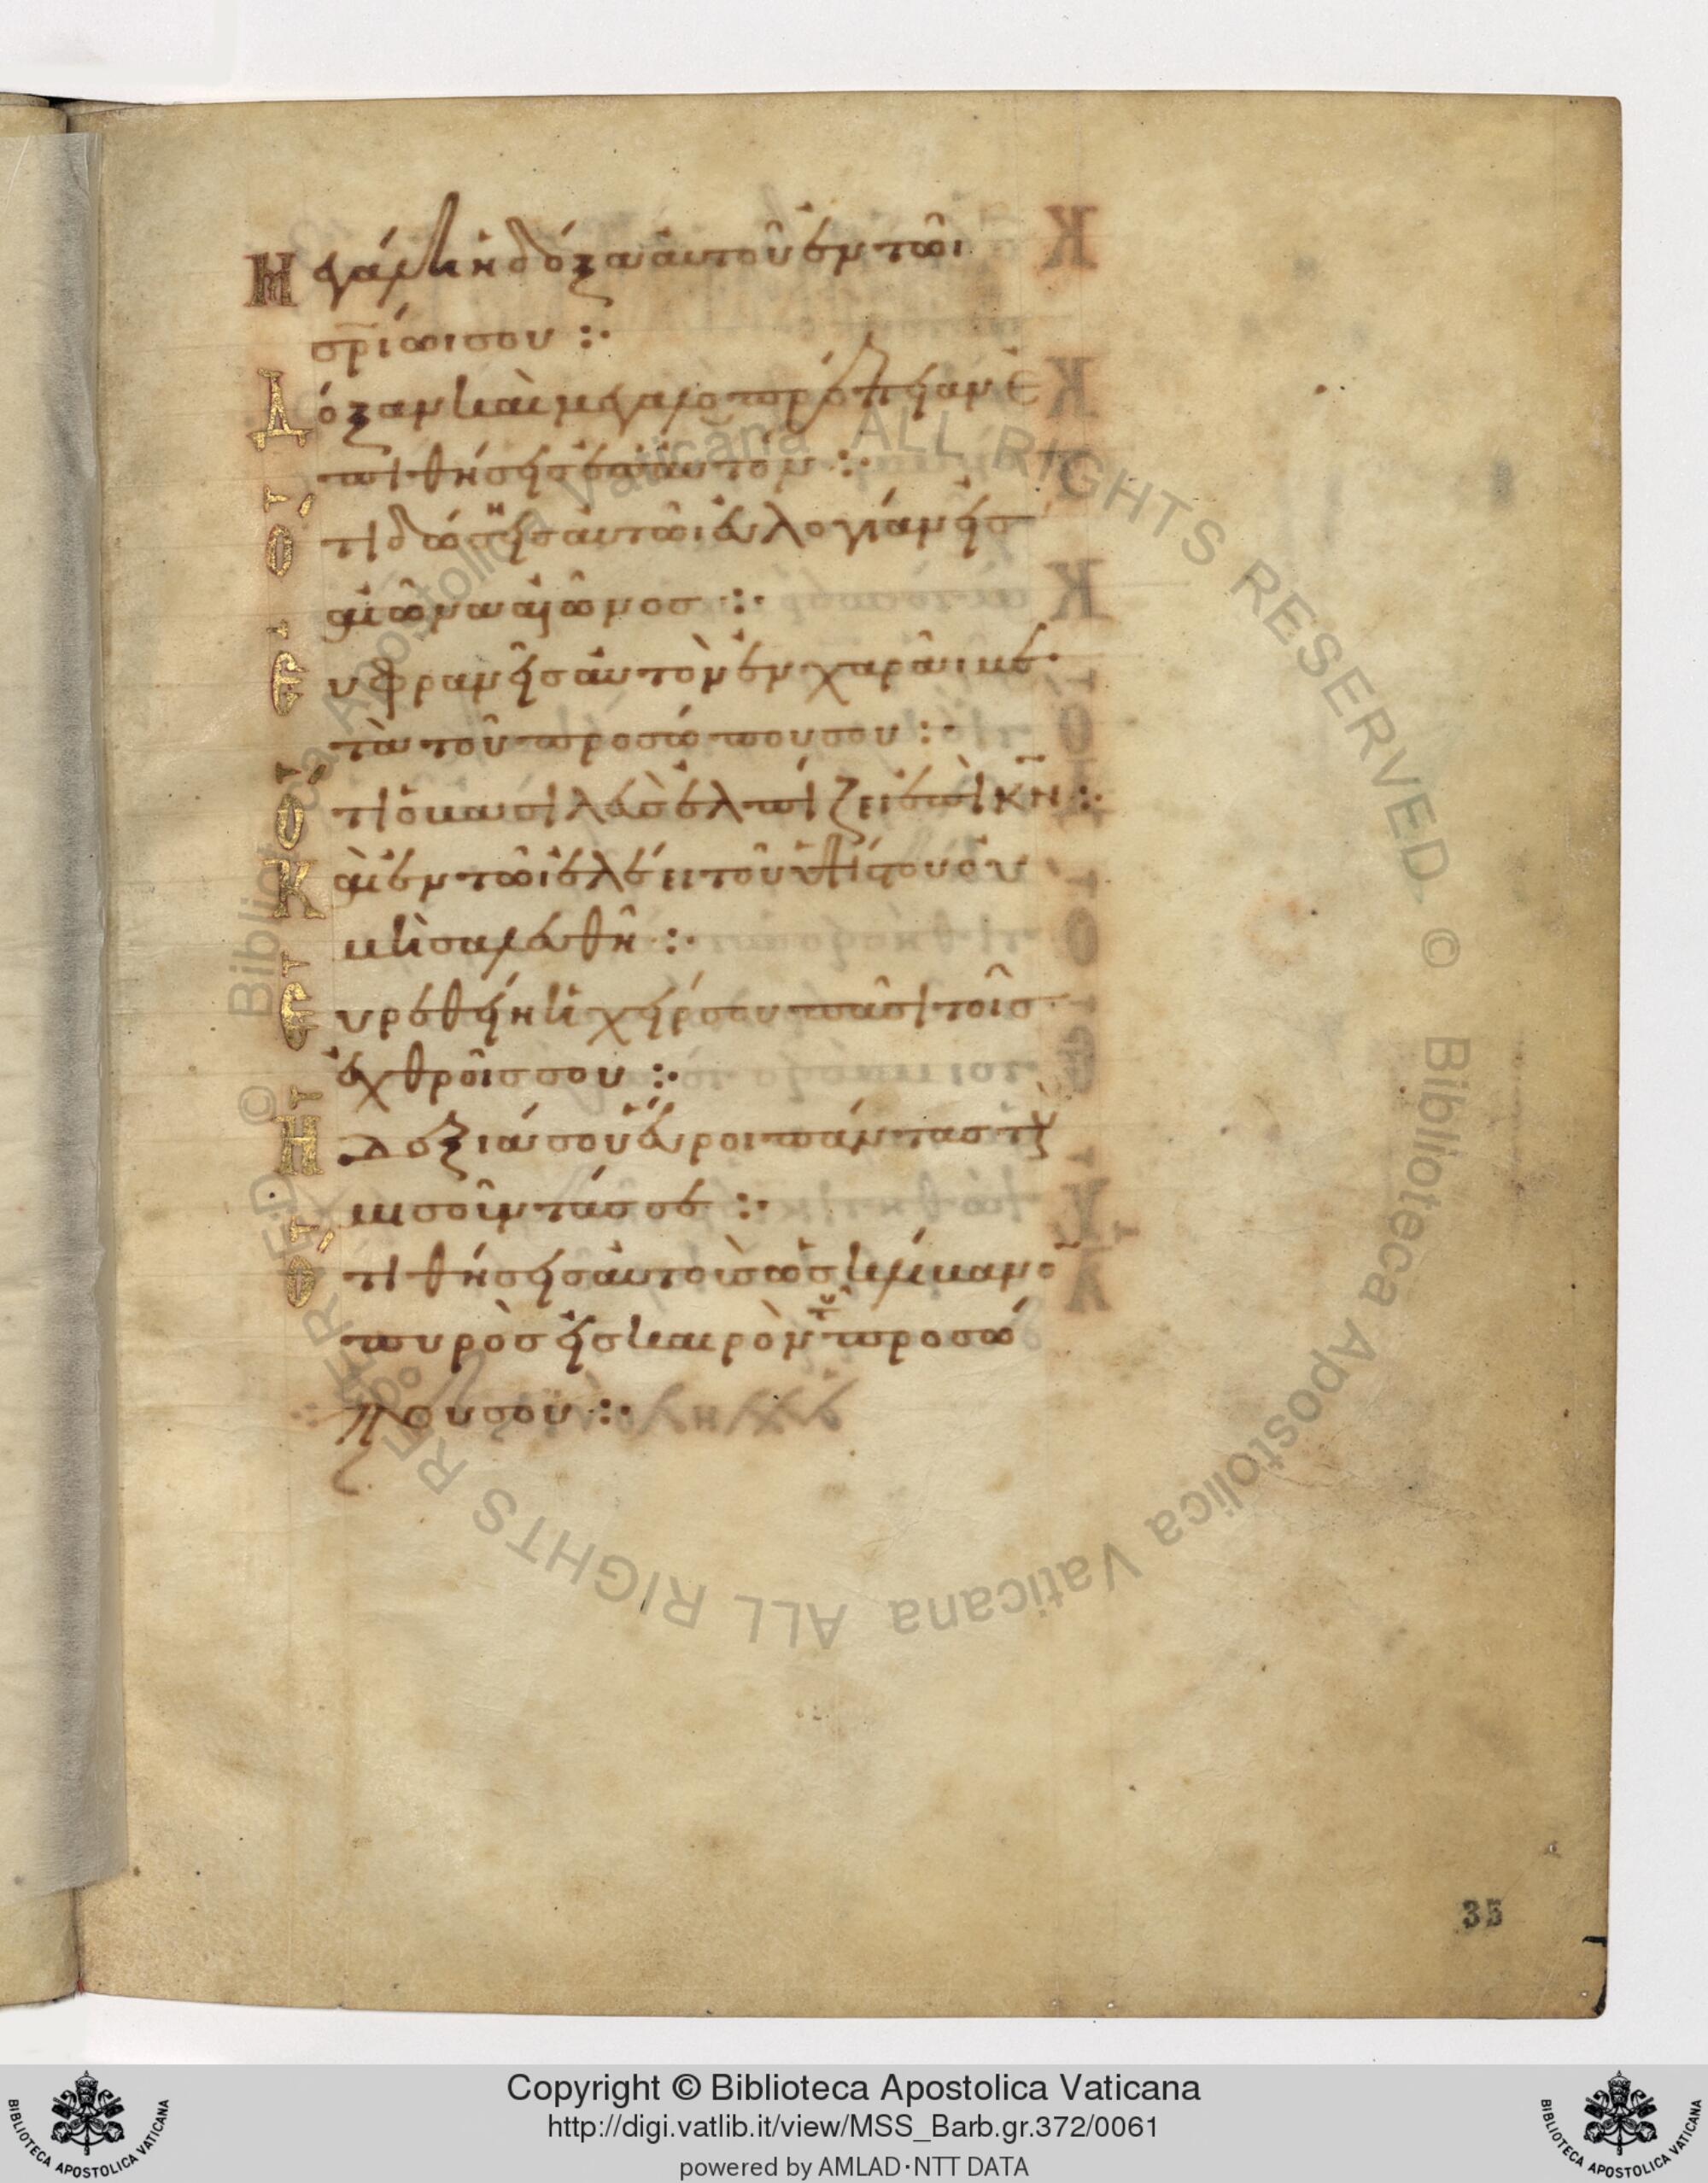 Μεγάλη ἡ δόξα αὐτοῦ ἐν τῶι
σρ̅ίωι σου :·
Δόξαν καὶ μεγαλοπρέπειαν ἐ
πιθήσεις ἐπ αὐτόν :·
Ὅτι δώσεις αὐτῶι εὐλογίαν εἰσ
αἰῶνα αἰῶνοσ :·
Εὐφρανεῖσ αὐτὸν ἐν χαρᾶι με
τὰ τοῦ προσώπου σου :·
Ὅτι ὁ βασιλεὺσ ἐλπίζει ἐπὶ κν̅ :·
Καὶ ἐν τῶι ἐλέει τοῦ ὑψίστου οὐ
μὴ σαλευθῆ :·
Εὑρεθείη ἡ χείρ σου πᾶσι τοῖσ
ἐχθροῖσ σου :·
Ἡ δεξιά σου εὕροι πάντασ τοὺσ
μισοῦντάσ σε :·
Ὅτι θήσεισ αὐτοὺσ ὡσ κλίβανο̅
πυρὸσ εἰσ καιρὸν τοῦ προσώ
που σου :·
35
Copyright © Biblioteca Apostolica Vaticana
http://digi.vatlib.it/view/MSS_Barb.gr.372/0061
powered by AMLAD·NTT DATA
BIBLIOTECA APOSTOLICA VATICANA
BIBLIOTECA APOSTOLICA VATICANA
© Biblioteca Apostolica Vaticana ALL RIGHTS RESERVED © Biblioteca Apostolica Vaticana ALL RIGHTS RESERVED